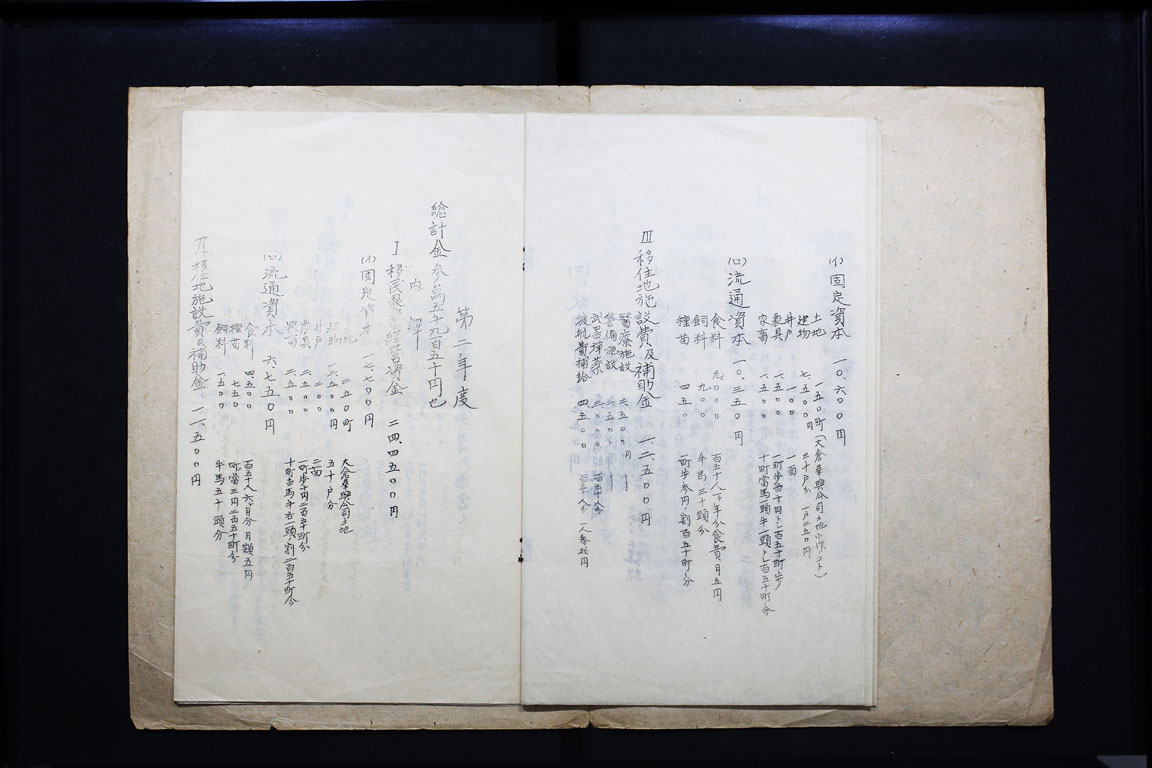 (イ) 固定資本 一〇、六〇〇円
土地 一五〇町 (大倉華興公司土地小作コト)
建物 七、五〇〇円 三十戸分 一戸二五〇円
井戸 一〇〇 一面
農具 一、五〇〇 一町歩当十円トシ百五十町歩
家畜 一、五〇〇 十町當馬一頭牛一頭トシ百五十町分
(ロ) 流通資本 一〇、三五〇円
食料 九、〇〇〇 百五十人一ヶ年分食費月五円
飼料 九〇〇 牛馬三十頭分
種苗 四五〇 一町歩参円割百五十町分
III 移住地施設費及補助金 一二、五〇〇円
醫療施設 二、五〇〇円
警備施設 二、五〇〇
武器弾薬 三、〇〇〇
渡航費補給 四、五〇〇 百五十人分 一人参拾円
第二年度
總計金参萬五千九百五十円也
内譯
I 移民農業経営資金 二四、四五〇円
(イ) 固定資本 一七、七〇〇円
土地 二五〇町 大倉華興公司土地
建物 一二、五〇〇円 五十戸分
井戸 二〇〇 二面
農具 二、五〇〇 一町歩十円二百五十町分
家畜 二、五〇〇 十町当馬牛各一頭割二百五十町分
(ロ) 流通資本 六、七五〇円
食料 四、五〇〇 百五十人六ヶ月分 月額五円
種苗 七五〇 町當三円二百五十町分
飼料 一、五〇〇 牛馬五十頭分
II 移住地施設費及補助金 一一、五〇〇円